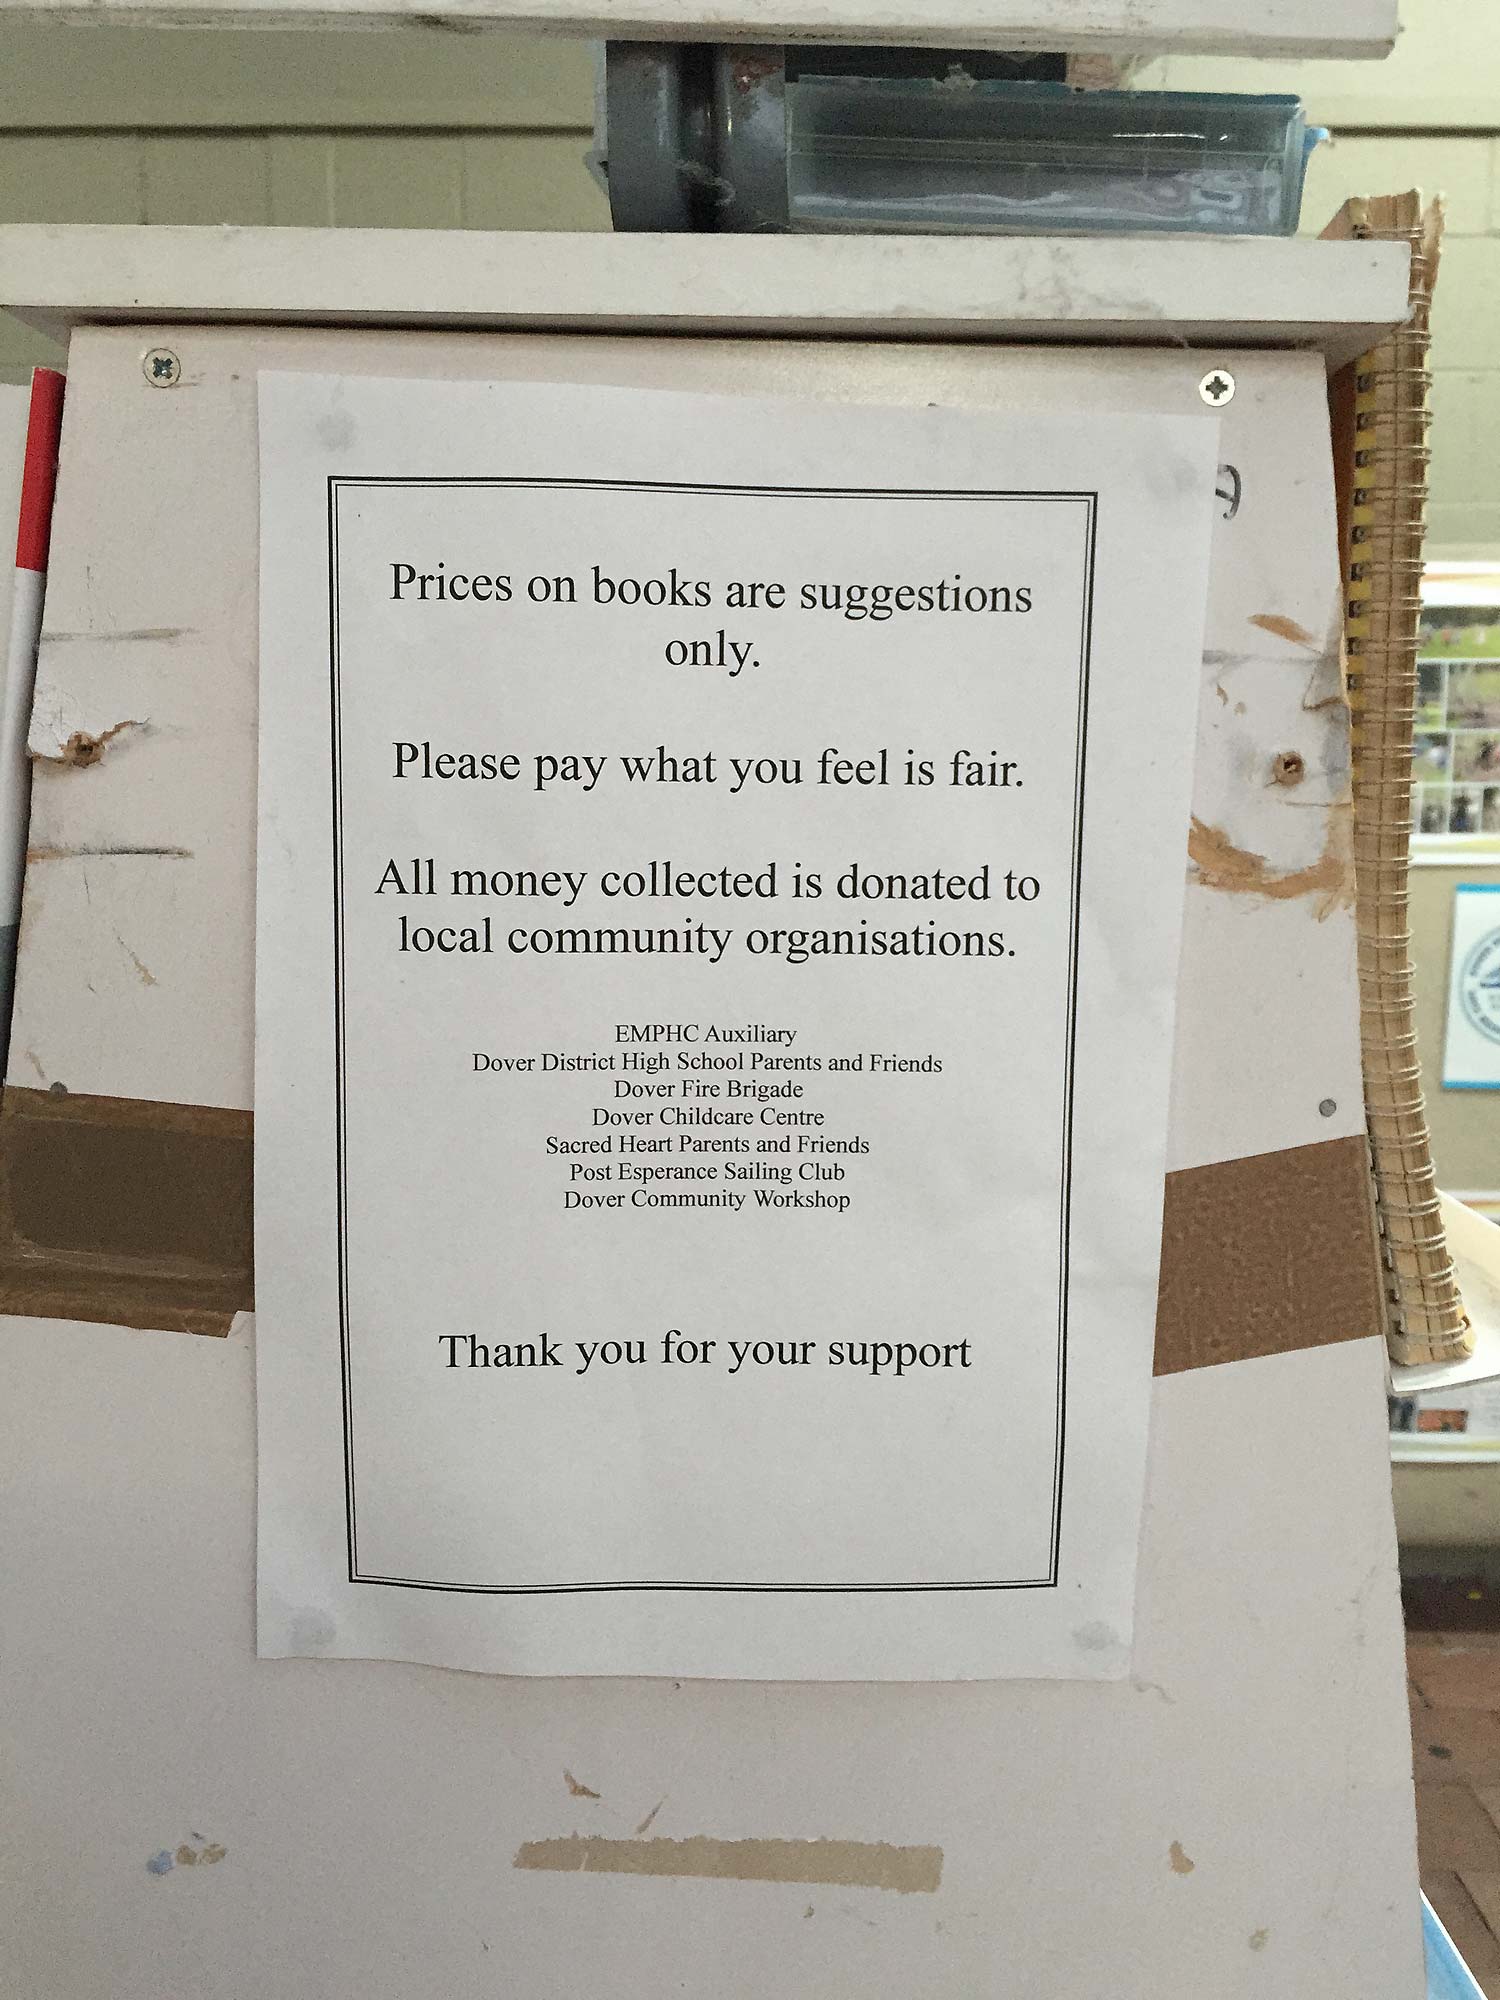 Prices on books are suggestions
only.
Please pay what you feel is fair.
All money collected is donated to
local community organisations.
EMPHC Auxiliary
Dover District High School Parents and Friends
Dover Fire Brigade
Dover Childcare Centre
Sacred Heart Parents and Friends
Post Esperance Sailing Club
Dover Community Workshop
Thank you for your support